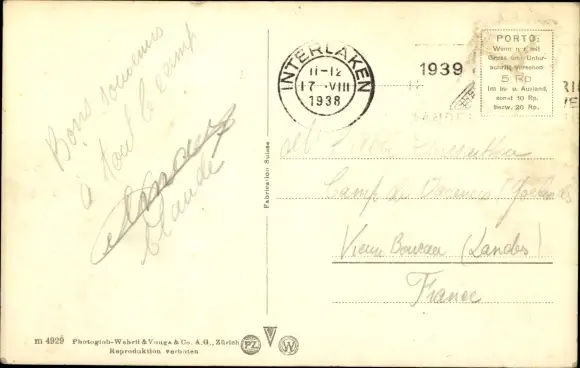 Bons souvenirs
à tout le camp
Claude
m 4929 Photoglob-Wehrli & Vouga & Co. A.G., Zürich
Reproduktion verboten
PZ W
Fabrication Suisse
INTERLAKEN
11-12
17.VIII
1938
1939
PORTO
Wenn nur mit
Gruss und Unter-
schrift versehen
5 Rp
im Inl. u. Ausland,
sonst 10 Rp.
bezw. 20 Rp.
Camp de Vacances
Vieux Boucau (Landes)
France